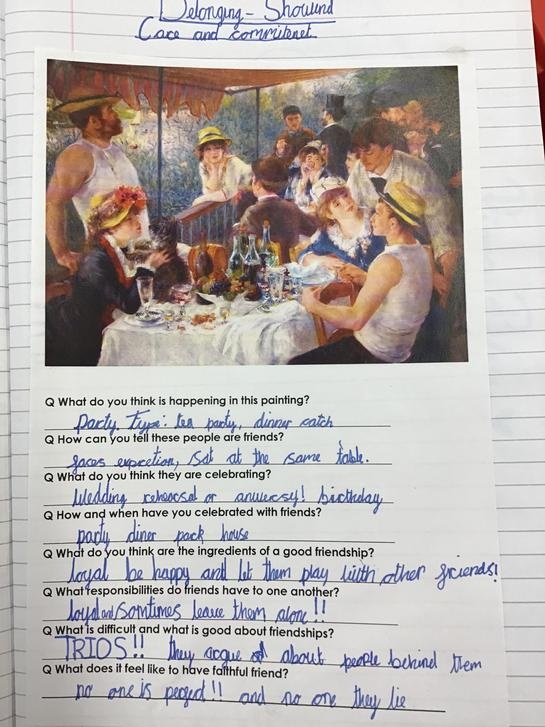 Belonging - Showing
Care and commitenet.
Q What do you think is happening in this painting?
Party. Type: tea party, dinner catch
Q How can you tell these people are friends?
faces exprection, sat at the same table.
Q What do you think they are celebrating?
Wedding rehearsal or anuvercy! birthday
Q How and when have you celebrated with friends?
party diner pack house
Q What do you think are the ingredients of a good friendship?
loyal be happy and let them play with other friends!
Q What responsibilities do friends have to one another?
loyal and/somtimes leave them alone!!
Q What is difficult and what is good about friendships?
TRIOS!! they argue about people behind them
Q What does it feel like to have faithful friend?
no one is peged!! and no one they lie